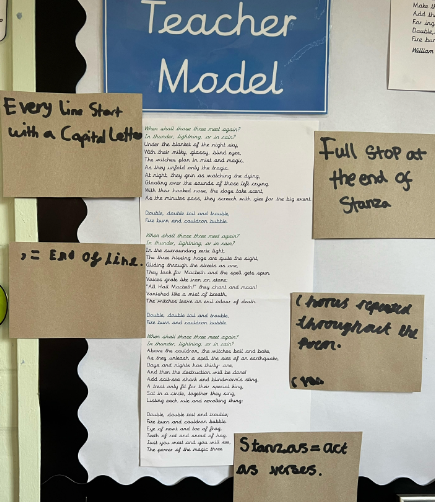 Teacher
Model
Make th
Add th
For ing
Double,
Fire bur
William
Every Line Start
with a Capital Letter
, = End of Line.
Full Stop at
the end of
Stanza
Chorus repeated
throughout the
Poem.
Stanzas = act
as verses.
When shall those three meet again?
In thunder, lightning, or in rain?
Under the blanket of the night sky,
With their milky, glassy, blind eyes,
The witches plan in mist and magic,
As they unfold only the tragic.
At night they spin as watching the dying,
Gloating over the sounds of those life crying.
With their hooked nose, the dogs take scent,
As the minutes pass, they screech with glee for the big event.
Double, double toil and trouble,
Fire burn and cauldron bubble.
When shall those three meet again?
In thunder, lightning, or in rain?
In the surrounding eerie light,
The three hissing hags are quite the sight,
Gliding through the streets as one,
They look for Macbeth and the spell gets spun.
Voices grate like iron on stone,
"All Hail Macbeth!" they chant and moan!
Vanished like a mist of breath,
The witches leave an evil odour of death.
Double, double toil and trouble,
Fire burn and cauldron bubble.
When shall those three meet again?
In thunder, lightning, or in rain?
Above the cauldron, the witches boil and bake,
As they unleash a spell the size of an earthquake,
Days and nights has thirty-one,
And then the destruction will be done!
Add saltwater shark and
A treat only fit for their special king,
Sat in a circle, together they sing,
Listing each vile and revolting thing:
Double, double toil and trouble,
Fire burn and cauldron bubble.
Eye of newt and toe of frog,
Tooth of rat and snout of hog,
Just you wait and you will see,
The power of the magic three.